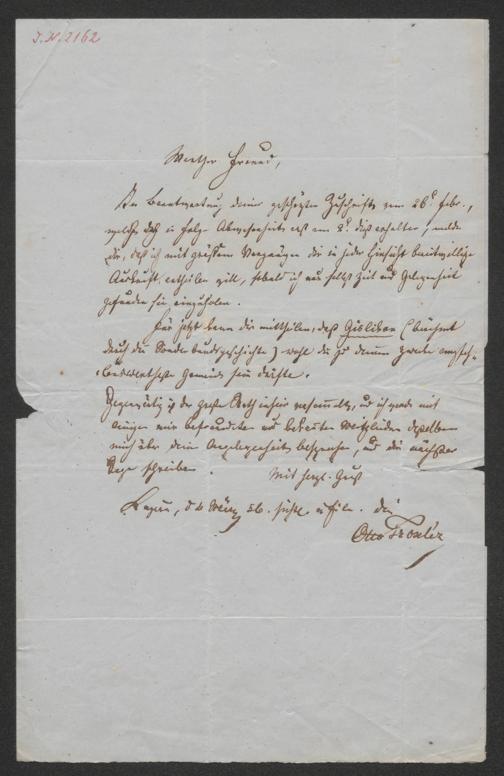 J.N. 2162
Werther Freund,
In Beantwortung deiner geschätzten Zuschrift vom 26t Febr.,
welche ich in Folge Abwesenheit erst am 2t. dieß erhalten, melde
dir, daß ich mit größtem Vergnügen die in jeder Hinsicht bereitwillige
Auskunft ertheilen will, sobald ich nur selbst Zeit und Gelegenheit
gefunden sie einzuholen.
Für jetzt kann dir mittheilen, daß Gislikon (bekannt
durch die Sonderbundsgeschichte) wohl die zu deinem Zwecke
Gemeinde sein dürfte.
Gegenwärtig ist der große Rath hier versammelt, und ich werde mit
einigen mir befreundeten und bekannten Mitgliedern desselben
mich über deine Angelegenheit besprechen, und dir nächster
Tage schreiben. Mit herzl. Gruß
Luzern, d. 4 März 56. in Eile. dein
Otto Troxler